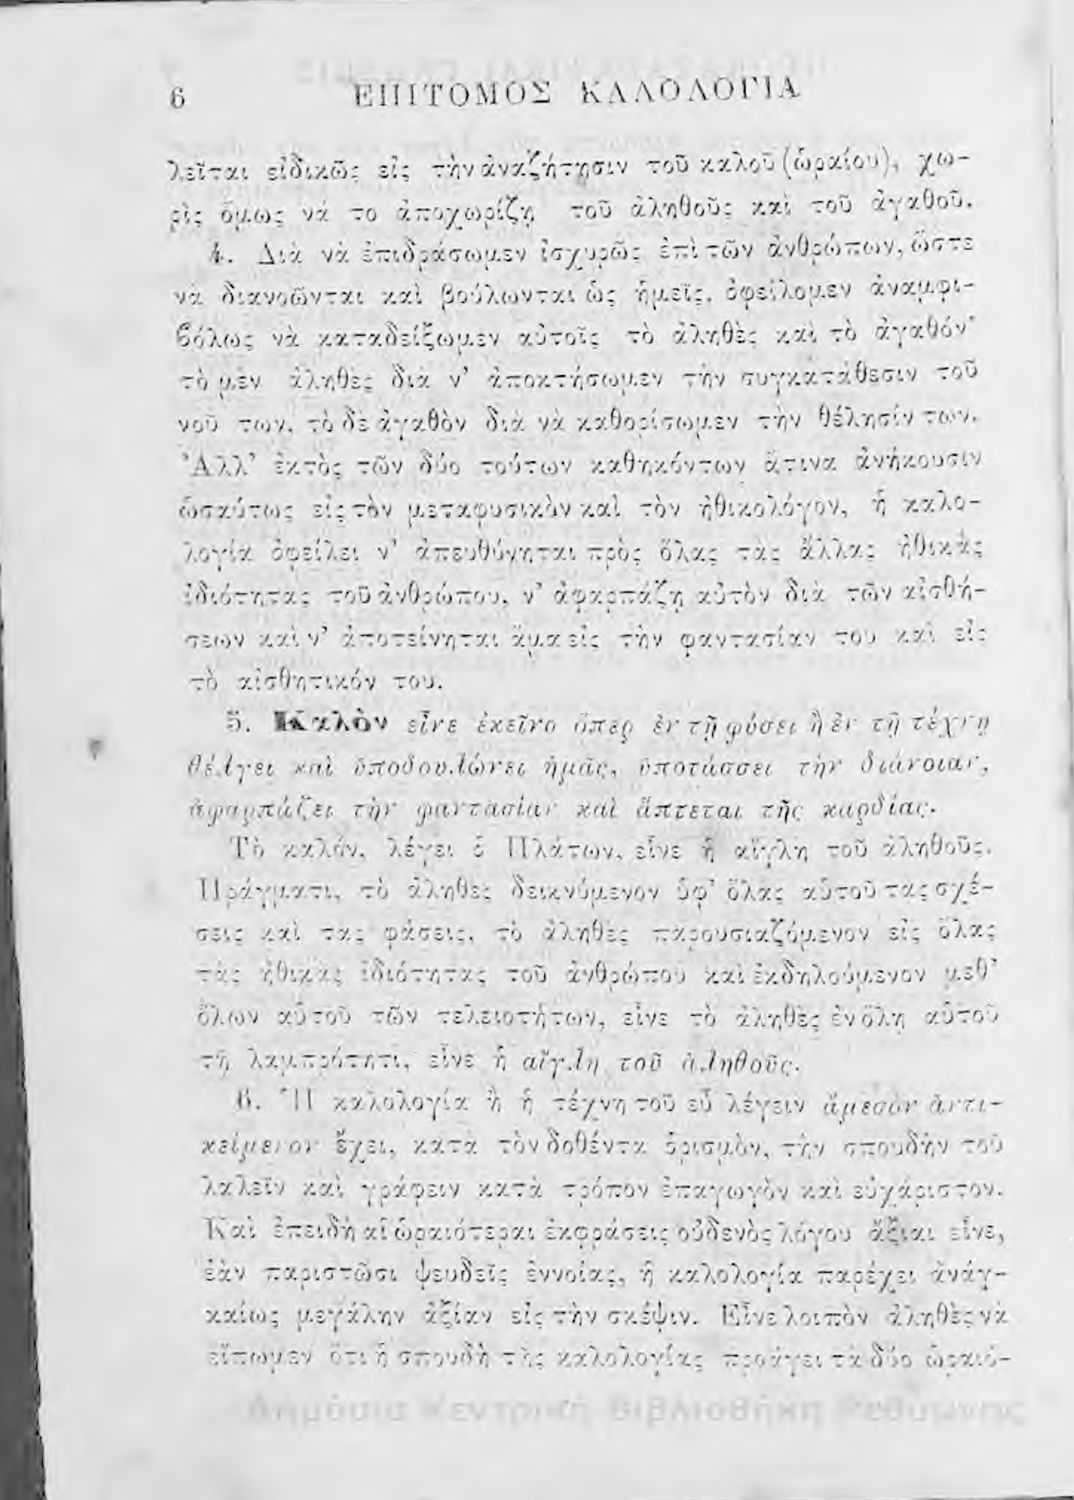 6 ΕΠΙΤΟΜΟΣ ΚΑΛΟΛΟΓΙΑ
λεῖται εἰδικῶς εἰς τὴν ἀναζήτησιν τοῦ καλοῦ (ὡραίου), χω-
ρὶς ὅμως νὰ το ἀποχωρίζῃ τοῦ ἀληθοῦς καὶ τοῦ ἀγαθοῦ.
4. Διὰ νὰ ἐπιδράσωμεν ἰσχυρῶς ἐπὶ τῶν ἀνθρώπων, ὥστε
νὰ διανοῶνται καὶ βούλωνται ὡς ἡμεῖς, ὀφείλομεν ἀναμφι-
βόλως νὰ καταδείξωμεν αὐτοῖς τὸ ἀληθὲς καὶ τὸ ἀγαθόν·
τὸ μὲν ἀληθὲς διὰ ν’ ἀποκτήσωμεν τὴν συγκατάθεσιν τοῦ
νοῦ των, τὸ δὲ ἀγαθὸν διὰ νὰ καθορίσωμεν τὴν θέλησίν των.
Ἀλλ’ ἐκτὸς τῶν δύο τούτων καθηκόντων ἅτινα ἀνήκουσιν
ὡσαύτως εἰς τὸν μεταφυσικὸν καὶ τὸν ἠθικολόγον, ἡ καλο-
λογία ὀφείλει ν’ ἀπευθύνηται πρὸς ὅλας τὰς ἄλλας ἠθικὰς
ἰδιότητας τοῦ ἀνθρώπου, ν’ ἀφαρπάζῃ αὐτὸν διὰ τῶν αἰσθή-
σεων καὶ ν’ ἀποτείνηται ἅμα εἰς τὴν φαντασίαν του καὶ εἰς
τὸ αἰσθητικόν του.
5. Καλὸν εἶνε ἐκεῖνο ὅπερ ἐν τῇ φύσει ἢ ἐν τῇ τέχνῃ
θέλγει καὶ ὑποδουλώνει ἡμᾶς, ὑποτάσσει τὴν διάνοιαν,
ἀφαρπάζει τὴν φαντασίαν καὶ ἅπτεται τῆς καρδίας.
Τὸ καλόν, λέγει ὁ Πλάτων, εἶνε ἡ αἴγλη τοῦ ἀληθοῦς.
Πράγματι, τὸ ἀληθὲς δεικνύμενον ὑφ’ ὅλας αὐτοῦ τας σχέ-
σεις καὶ τας φάσεις, τὸ ἀληθὲς παρουσιαζόμενον εἰς ὅλας
τὰς ἠθικὰς ἰδιότητας τοῦ ἀνθρώπου καὶ ἐκδηλούμενον μεθ’
ὅλων αὐτοῦ τῶν τελειοτήτων, εἶνε τὸ ἀληθὲς ἐν ὅλῃ αὐτοῦ
τῇ λαμπρότητι, εἶνε ἡ αἴγλη τοῦ ἀληθοῦς.
6. Ἡ καλολογία ἢ ἡ τέχνη τοῦ εὖ λέγειν ἄμεσον ἀντι-
κείμενον ἔχει, κατὰ τὸν δοθέντα ὁρισμὸν, τὴν σπουδὴν τοῦ
λαλεῖν καὶ γράφειν κατὰ τρόπον ἐπαγωγὸν καὶ εὐχάριστον.
Καὶ ἐπειδὴ αἱ ὡραιότεραι ἐκφράσεις οὐδενὸς λόγου ἄξιαι εἶνε,
ἐὰν παριστῶσι ψευδεῖς ἐννοίας, ἡ καλολογία παρέχει ἀνάγ-
καίως μεγάλην ἀξίαν εἰς τὴν σκέψιν. Εἶνε λοιπὸν ἀληθὲς νὰ
εἴπωμεν ὅτι ἡ σπουδὴ τῆς καλολογίας προάγει τὰ δύο ὡραιό-
Δημόσια Κεντρική Βιβλιοθήκη Ρεθύμνης